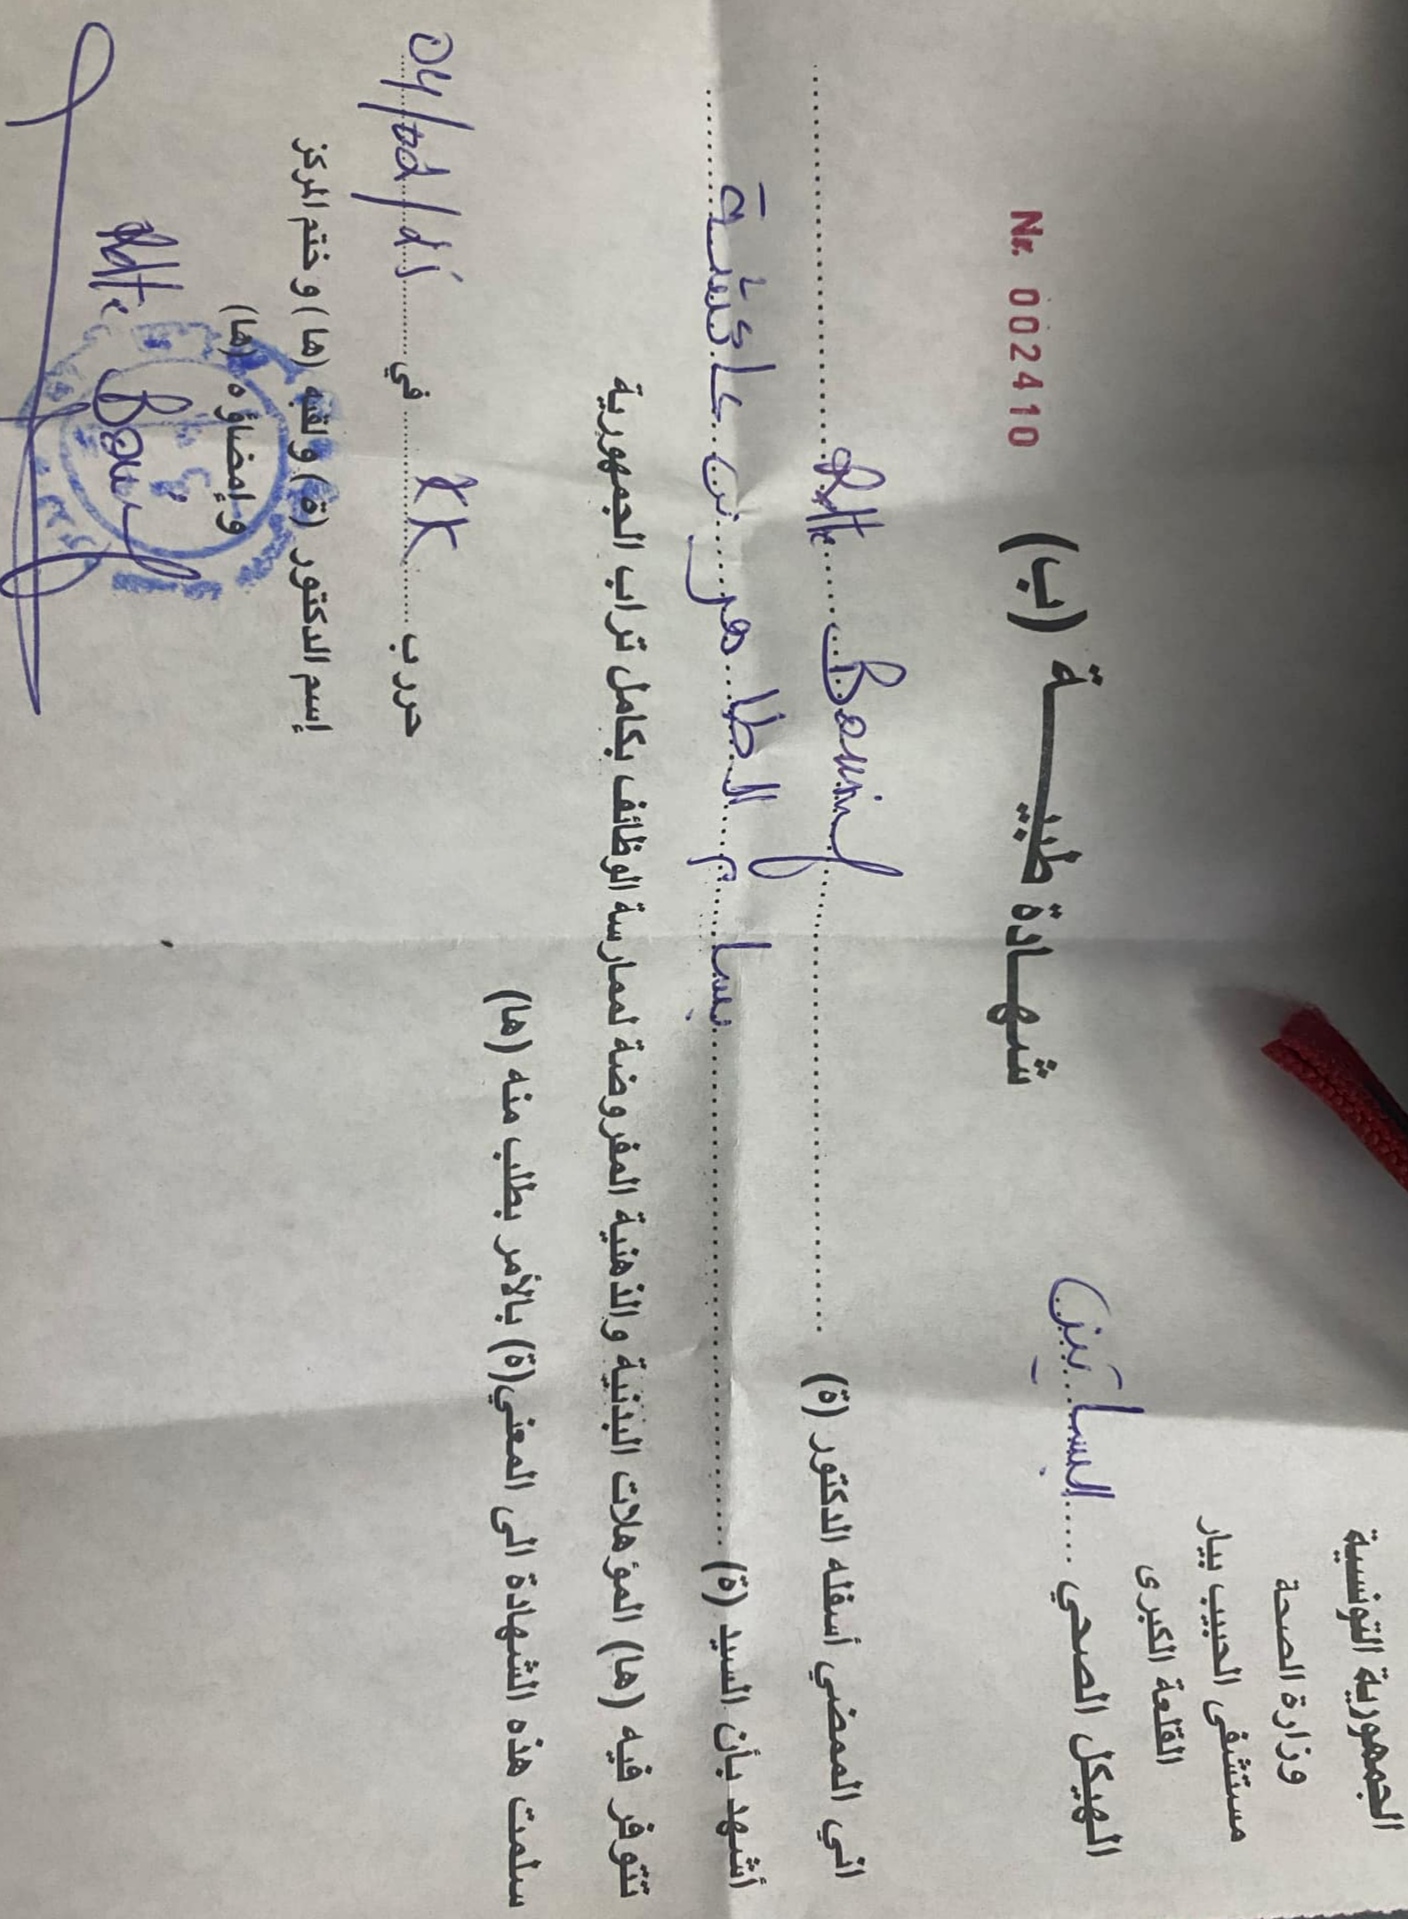 الجمهورية التونسية
وزارة الصحة
مستشفى الحبيب بيار
القلعة الكبرى
الهيكل الصحي البساتين
شهادة طبية (ب)
Nr. 002410
اني الممضي أسفله الدكتور (ة)
أشهد بأن السيد (ة) بسام الطاهر بن عائشة
تتوفر فيه (ها) المؤهلات البدنية والذهنية المفروضة لممارسة الوظائف بكامل تراب الجمهورية
سلمت هذه الشهادة الى المعني(ة) بالأمر بطلب منه (ها)
حرر ب KK في
إسم الدكتور (ة) ولقبه (ها) وختم المركز
وإمضاؤه (ها)